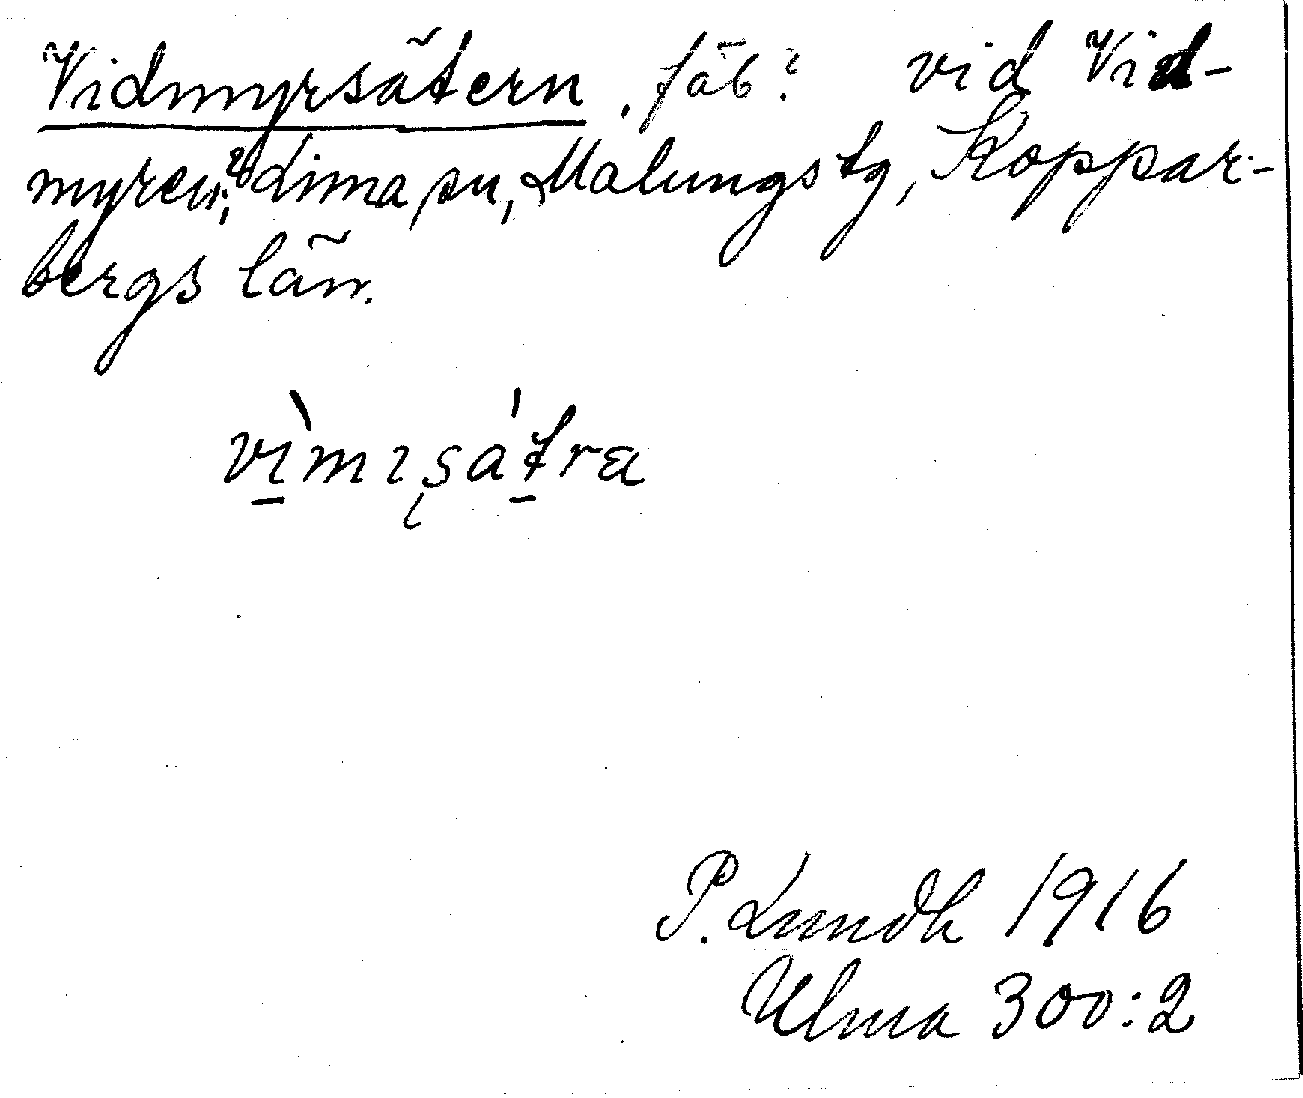 Vidmyrsätern, fäb? vid Vid-
myren?, Lima sn, Malungs tg, Koppar-
bergs län.
vìmɪʂátra
P. Lundh 1916
Ulma 300:2